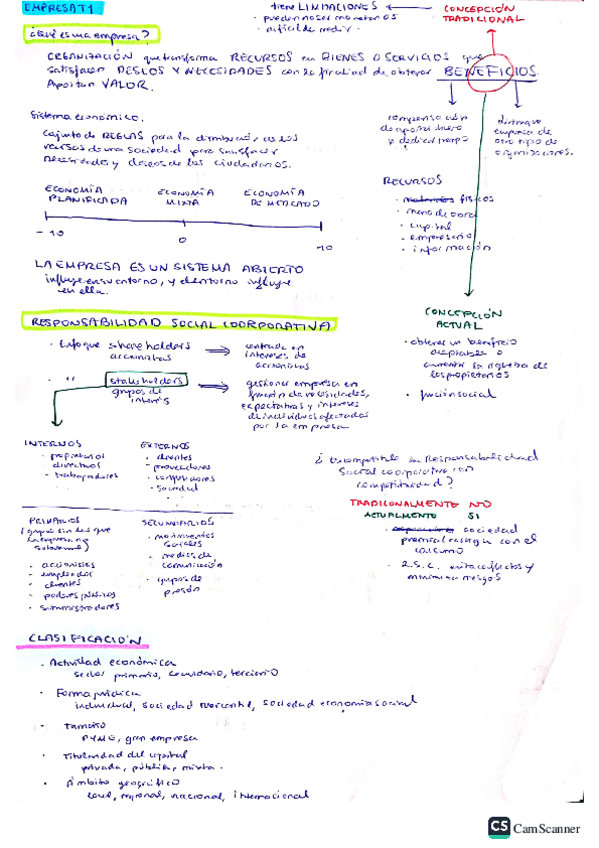 EMPRESA T1
tiene LIMITACIONES
· pueden no ser monetarios
· difícil de medir
CONCEPCIÓN
TRADICIONAL
¿Qué es una empresa?
ORGANIZACIÓN que transforma RECURSOS en BIENES O SERVICIOS que
satisfacen DESEOS Y NECESIDADES con la finalidad de obtener BENEFICIOS.
Aportan VALOR.
compensación
de aportar dinero
y dedicar tiempo
distingue
empresa de
otro tipo de
organizaciones.
Sistema económico.
Conjunto de REGLAS para la distribución de los
recursos de una sociedad para satisfacer
necesidades y deseos de los ciudadanos.
ECONOMÍA
PLANIFICADA
ECONOMÍA
MIXTA
ECONOMÍA
DE MERCADO
-10
0
10
RECURSOS
· físicos
· mano de obra
· capital
· empresario
· información
LA EMPRESA ES UN SISTEMA ABIERTO
influye en su entorno, y el entorno influye
en ella.
CONCEPCIÓN
ACTUAL
· obtener un beneficio
aceptable o
aumentar la riqueza de
los propietarios
· función social
RESPONSABILIDAD SOCIAL CORPORATIVA
· Enfoque shareholders
accionistas
centrada en
intereses de
accionistas
· " stakeholders
grupos de
interés
gestionar empresa en
función de necesidades,
expectativas e intereses
de individuos afectados
por la empresa
INTERNOS
· propietarios
directivos
· trabajadores
EXTERNOS
· clientes
· proveedores
· competidores
· sociedad
¿Es compatible la Responsabilidad
Social corporativa con
competitividad?
TRADICIONALMENTE NO
ACTUALMENTE SI
· sociedad
premia/castiga con el
consumo
· R.S.C. evita conflictos y
minimiza riesgos
PRIMARIOS
(grupos sin los que
la empresa no
sobrevive)
· accionistas
· empleados
· clientes
· poderes públicos
· suministradores
SECUNDARIOS
· movimientos
sociales
· medios de
comunicación
· grupos de
presión
CLASIFICACIÓN
· Actividad económica
sector primario, secundario, terciario
· Forma jurídica
individual, sociedad mercantil, sociedad economía social
· Tamaño
PYME, gran empresa
· Titularidad del capital
privada, pública, mixta.
· Ámbito geográfico
local, regional, nacional, internacional
CS CamScanner